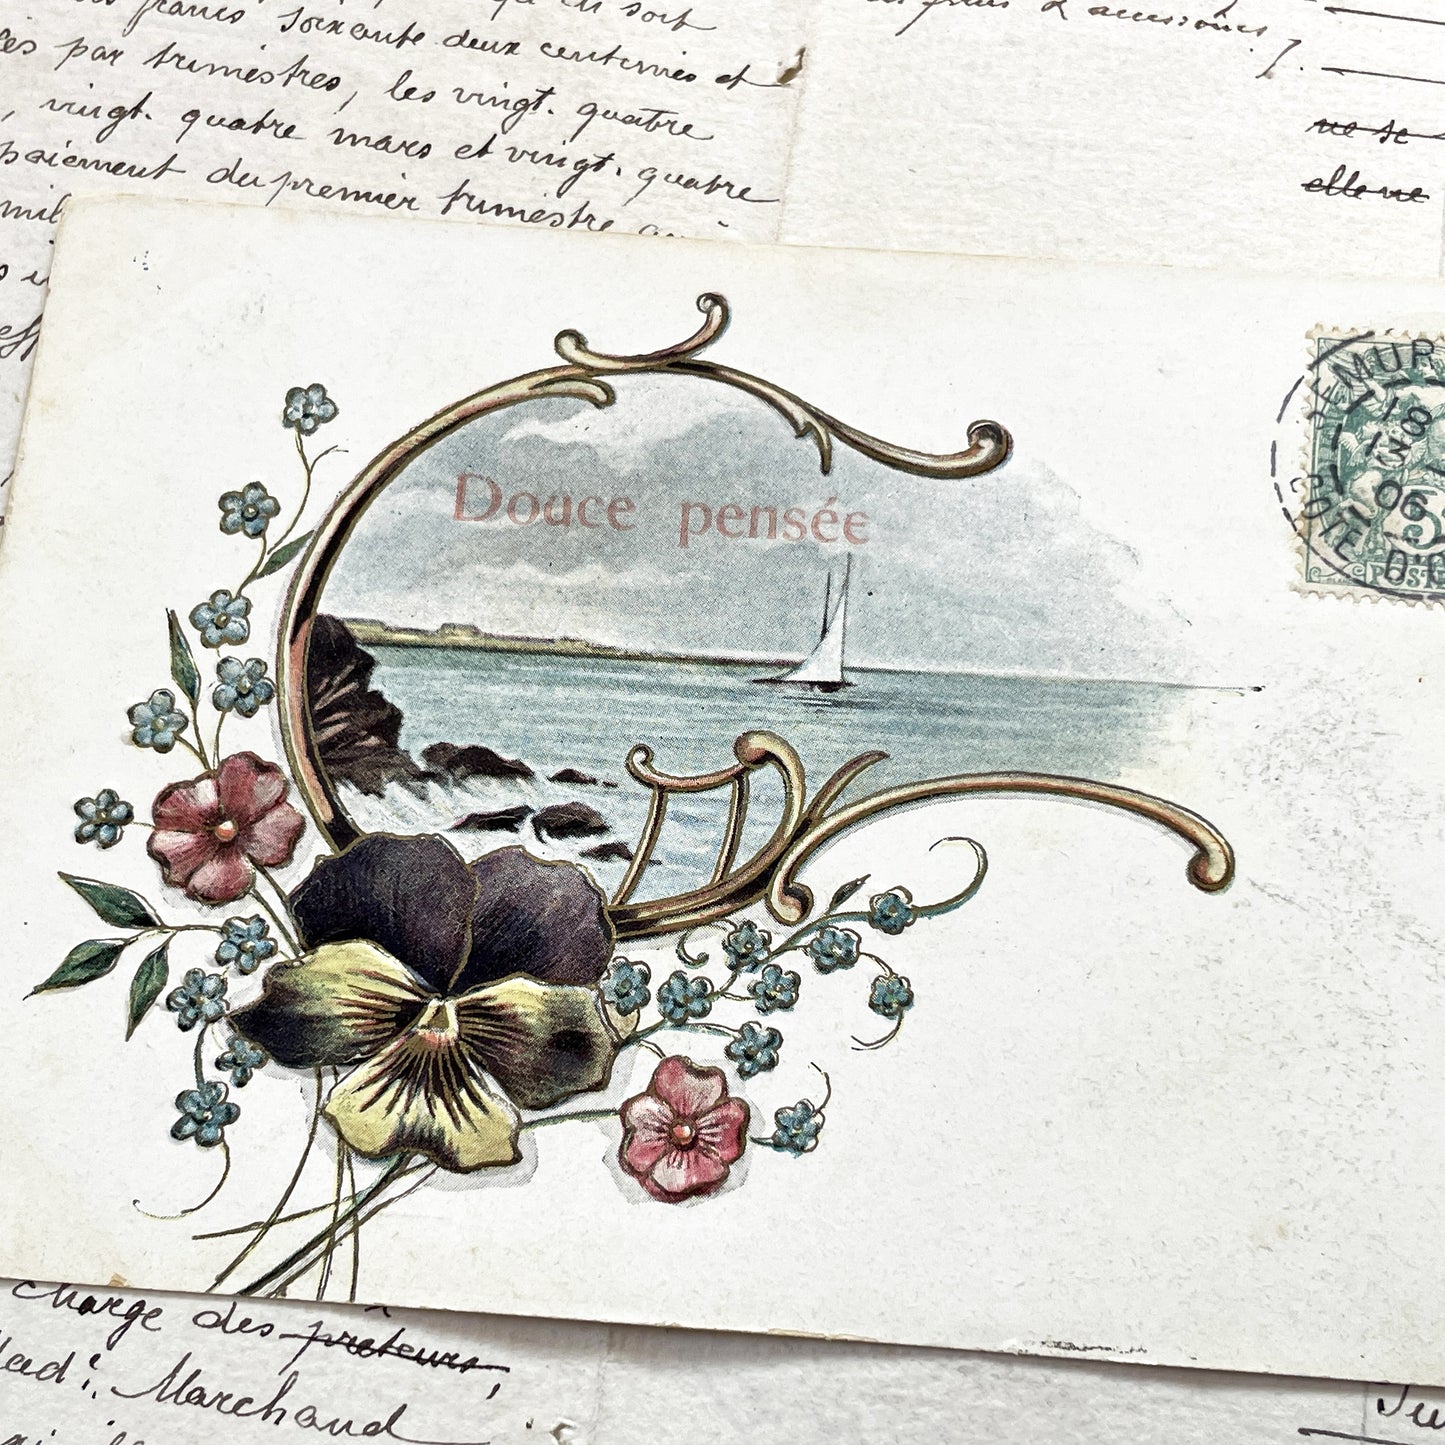 francs soixante deux centimes et
par trimestres, les vingt. quatre
, vingt. quatre mars et vingt. quatre
paiement du premier trimestre
& accessoires
ne se
elle ne
Douce pensée
SEMUR
18
3
06
COTE D'O
5
POST
charge des prêteurs,
Mad. Marchand